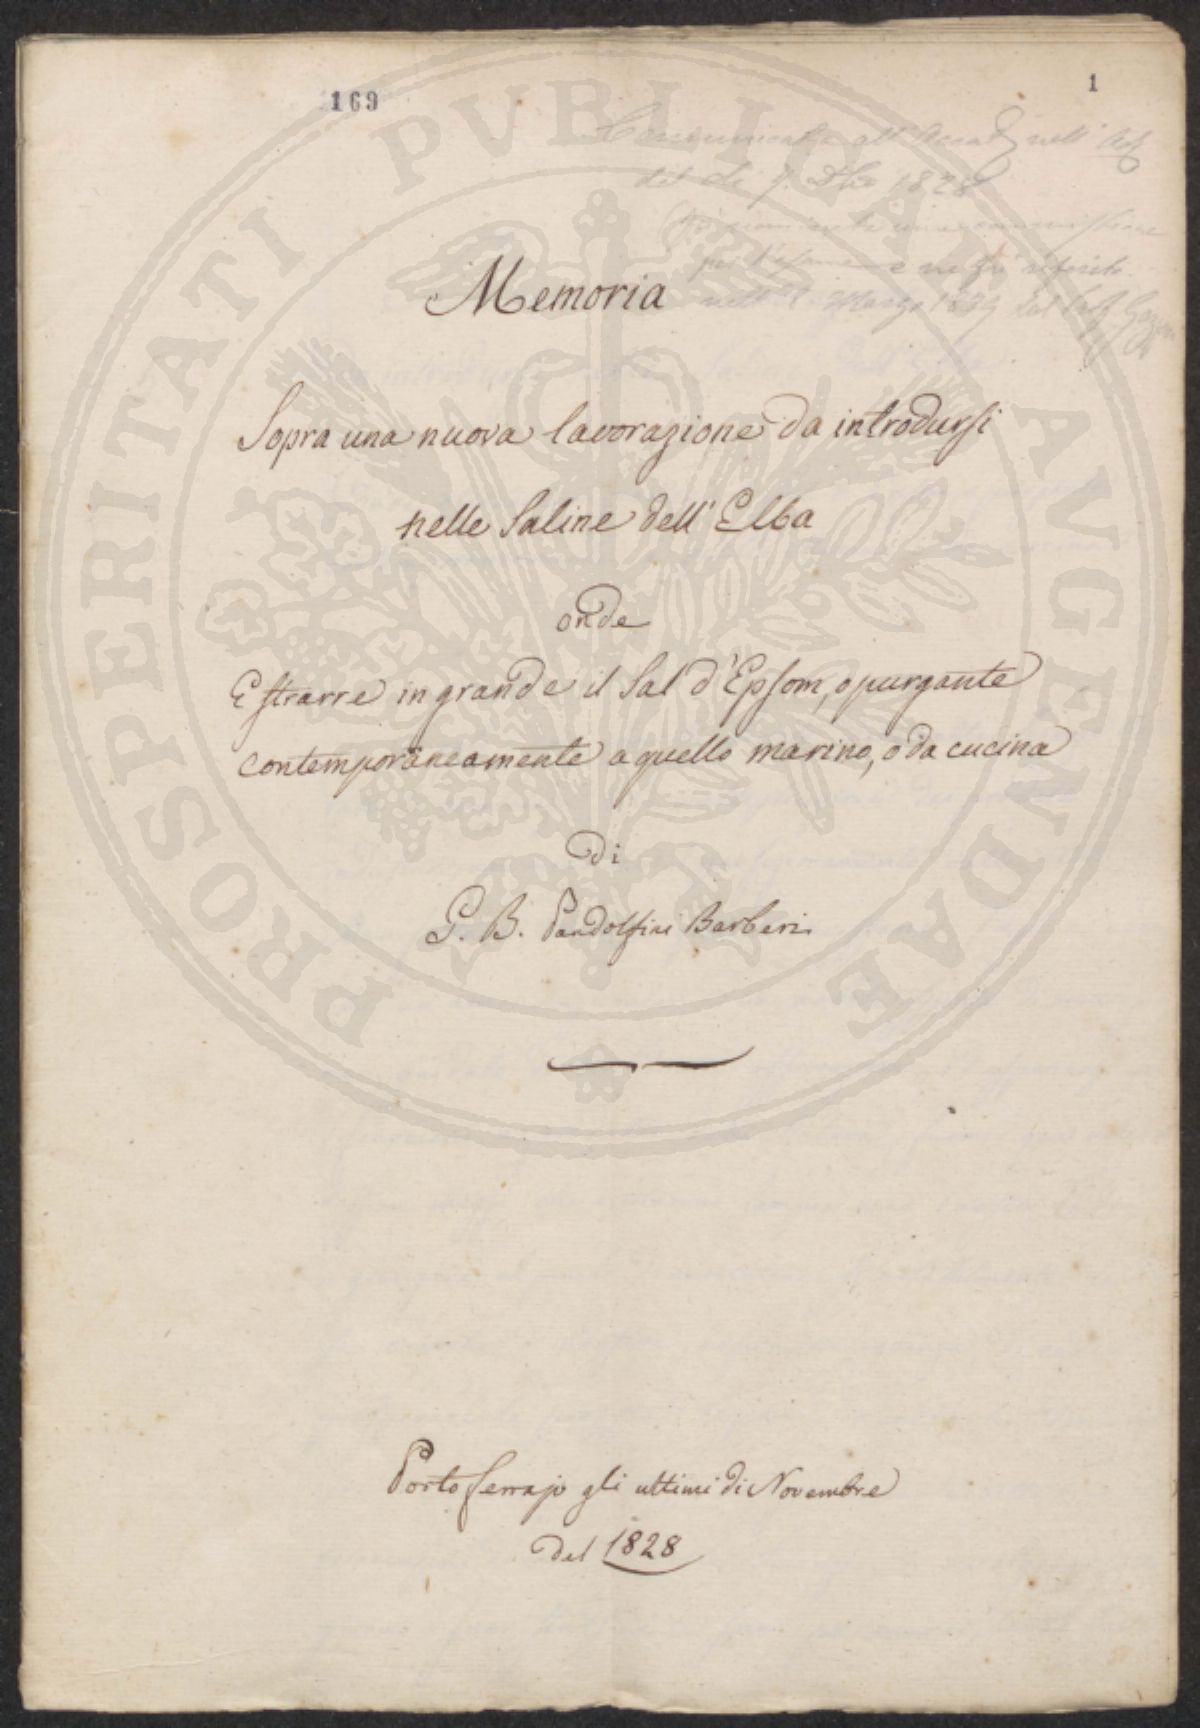 169
1
Comunicata all'Accad nell'
del di 7. 1828
una commissione
per l'esame e ne fu riferito
nell' Marzo 1829 dal
Memoria
Sopra una nuova lavorazione da introdursi
nelle Saline dell'Elba
onde
Estrarre in grande il Sal d'Epsom, o purgante
contemporaneamente a quello marino, o da cucina
di
G. B. Pandolfini Barberi
Portoferrajo gli ultimi di Novembre
del 1828
PROSPERITATI PVBLICAE AVGENDAE